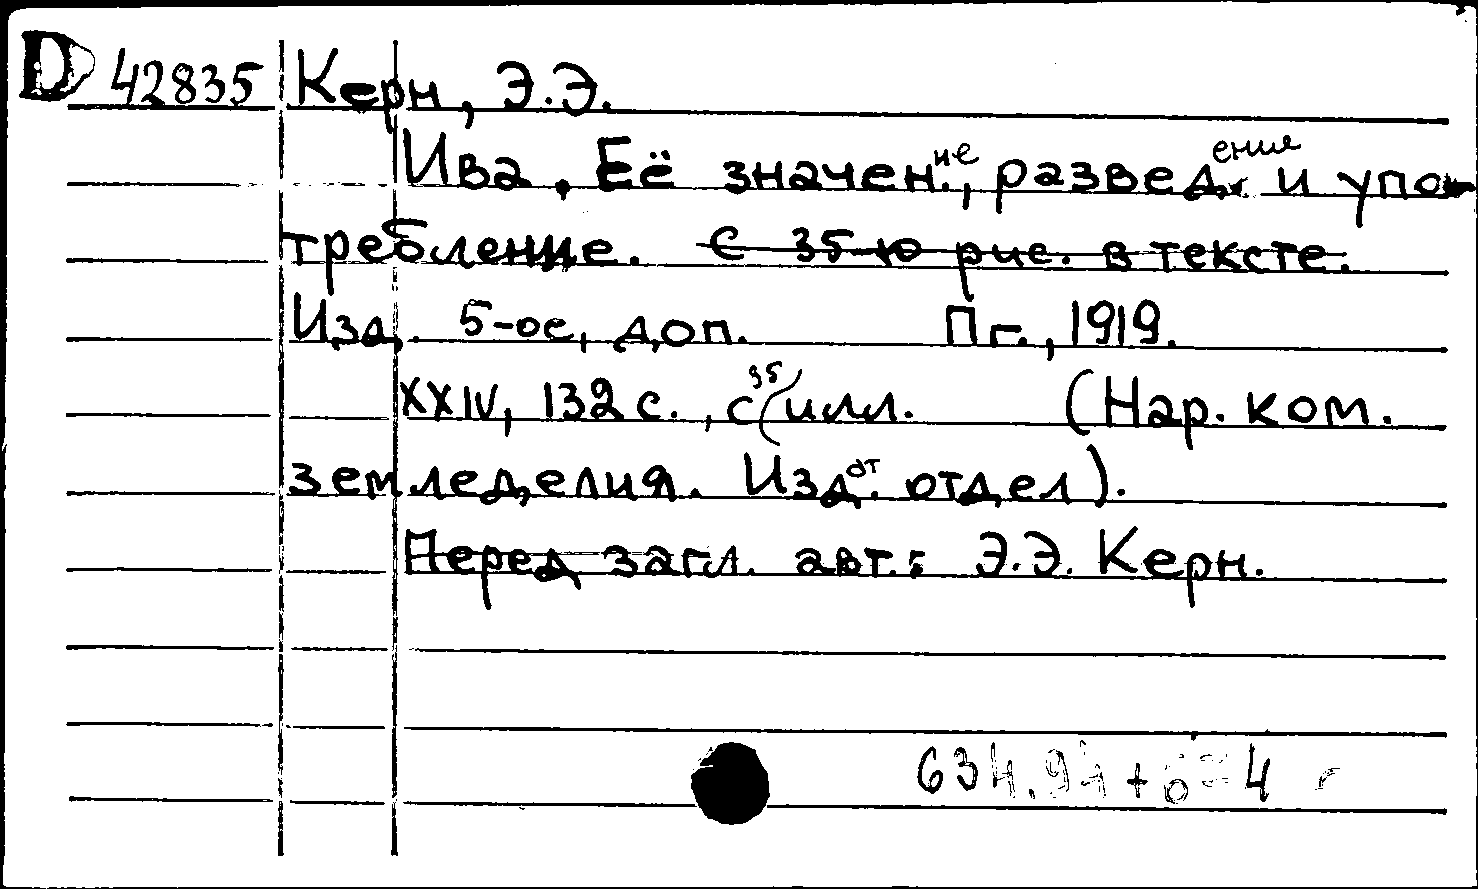 D 42835 Керн, Э.Э.
Ива, Её значение, разведение и упо-
требление. С 35-ю рис. в тексте.
Изд. 5-ое, доп. Пг., 1919.
XXIV, 132 с., с 35 илл. (Нар. ком.
земледелия. Издат. отдел).
Перед загл. авт.: Э.Э. Керн.
634.94